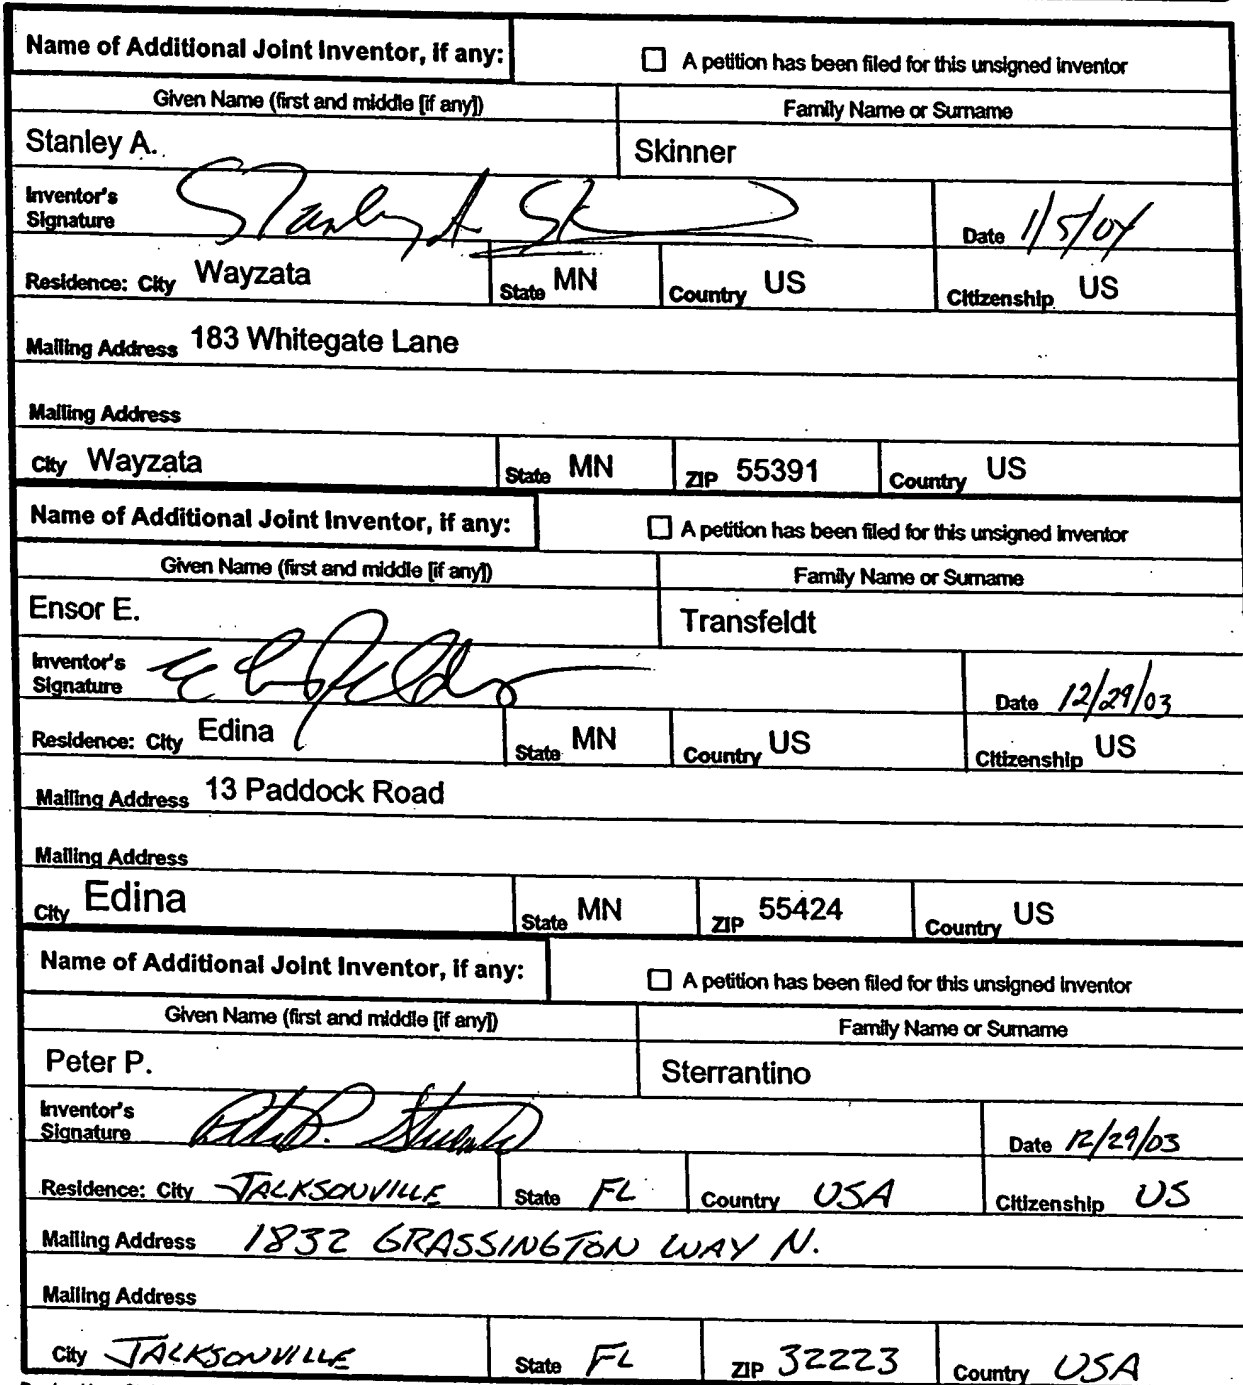 Name of Additional Joint Inventor, if any: ☐ A petition has been filed for this unsigned inventor
Given Name (first and middle [if any]) Family Name or Surname
Stanley A. Skinner
Inventor's
Signature Stanley A Sk Date 1/5/04
Residence: City Wayzata State MN Country US Citizenship US
Mailing Address 183 Whitegate Lane
Mailing Address
City Wayzata State MN ZIP 55391 Country US
Name of Additional Joint Inventor, if any: ☐ A petition has been filed for this unsigned inventor
Given Name (first and middle [if any]) Family Name or Surname
Ensor E. Transfeldt
Inventor's
Signature Date 12/29/03
Residence: City Edina State MN Country US Citizenship US
Mailing Address 13 Paddock Road
Mailing Address
City Edina State MN ZIP 55424 Country US
Name of Additional Joint Inventor, if any: ☐ A petition has been filed for this unsigned inventor
Given Name (first and middle [if any]) Family Name or Surname
Peter P. Sterrantino
Inventor's
Signature Date 12/29/03
Residence: City JACKSONVILLE State FL Country USA Citizenship US
Mailing Address 1832 GRASSINGTON WAY N.
Mailing Address
City JACKSONVILLE State FL ZIP 32223 Country USA